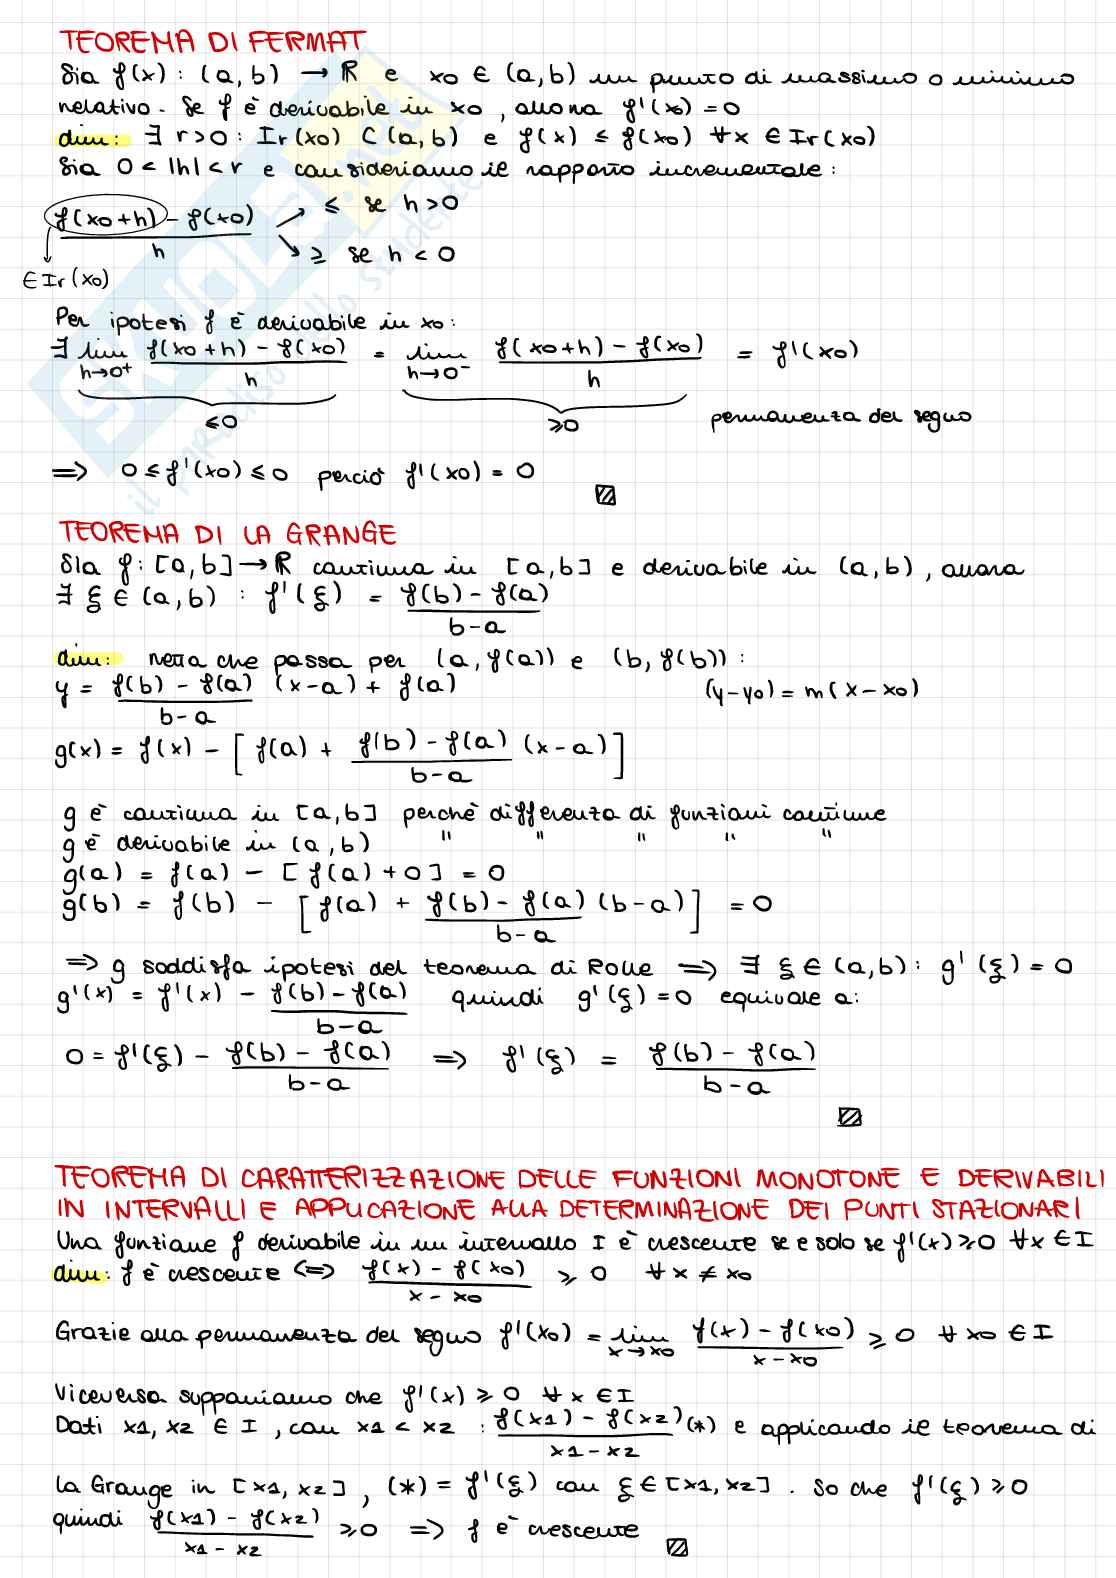 TEOREMA DI FERMAT
Sia f(x) : (a,b) → ℝ e x0 ∈ (a,b) un punto di massimo o minimo
relativo. Se f è derivabile in x0, allora f'(x0) = 0
dim: ∃ r>0 : Ir(x0) ⊂ (a,b) e f(x) ≤ f(x0) ∀x ∈ Ir(x0)
Sia 0 < |h| < r e consideriamo il rapporto incrementale :
(f(x0+h) - f(x0))/h ↗ ≤ se h>0
↘ ≥ se h<0
∈ Ir(x0)
Per ipotesi f è derivabile in x0:
∃ lim h→0⁺ (f(x0+h) - f(x0))/h = lim h→0⁻ (f(x0+h) - f(x0))/h = f'(x0)
≤0 ≥0 permanenza del segno
⟹ 0 ≤ f'(x0) ≤ 0 perciò f'(x0) = 0
TEOREMA DI LA GRANGE
Sia f: [a,b] → ℝ continua in [a,b] e derivabile in (a,b), allora
∃ ξ ∈ (a,b) : f'(ξ) = (f(b) - f(a))/(b-a)
dim: retta che passa per (a, f(a)) e (b, f(b)) :
y = (f(b) - f(a))/(b-a) (x-a) + f(a) (y-y0) = m(x-x0)
g(x) = f(x) - [f(a) + (f(b) - f(a))/(b-a) (x-a)]
g è continua in [a,b] perchè differenza di funzioni continue
g è derivabile in (a,b) " " " " "
g(a) = f(a) - [f(a)+0] = 0
g(b) = f(b) - [f(a) + (f(b) - f(a))/(b-a) (b-a)] = 0
⟹ g soddisfa ipotesi del teorema di Rolle ⟹ ∃ ξ ∈ (a,b) : g'(ξ) = 0
g'(x) = f'(x) - (f(b) - f(a))/(b-a) quindi g'(ξ) = 0 equivale a:
0 = f'(ξ) - (f(b) - f(a))/(b-a) ⟹ f'(ξ) = (f(b) - f(a))/(b-a)
TEOREMA DI CARATTERIZZAZIONE DELLE FUNZIONI MONOTONE E DERIVABILI
IN INTERVALLI E APPLICAZIONE ALLA DETERMINAZIONE DEI PUNTI STAZIONARI
Una funzione f derivabile in un intervallo I è crescente se e solo se f'(x) ≥ 0 ∀x ∈ I
dim: f è crescente ⟺ (f(x) - f(x0))/(x - x0) ≥ 0 ∀ x ≠ x0
Grazie alla permanenza del segno f'(x0) = lim x→x0 (f(x) - f(x0))/(x-x0) ≥ 0 ∀ x0 ∈ I
Viceversa supponiamo che f'(x) ≥ 0 ∀ x ∈ I
Dati x1, x2 ∈ I, con x1 < x2 : (f(x1) - f(x2))/(x1 - x2) (*) e applicando il teorema di
La Grange in [x1, x2], (*) = f'(ξ) con ξ ∈ [x1, x2]. So che f'(ξ) ≥ 0
quindi (f(x1) - f(x2))/(x1 - x2) ≥ 0 ⟹ f è crescente
SKUOLA.net